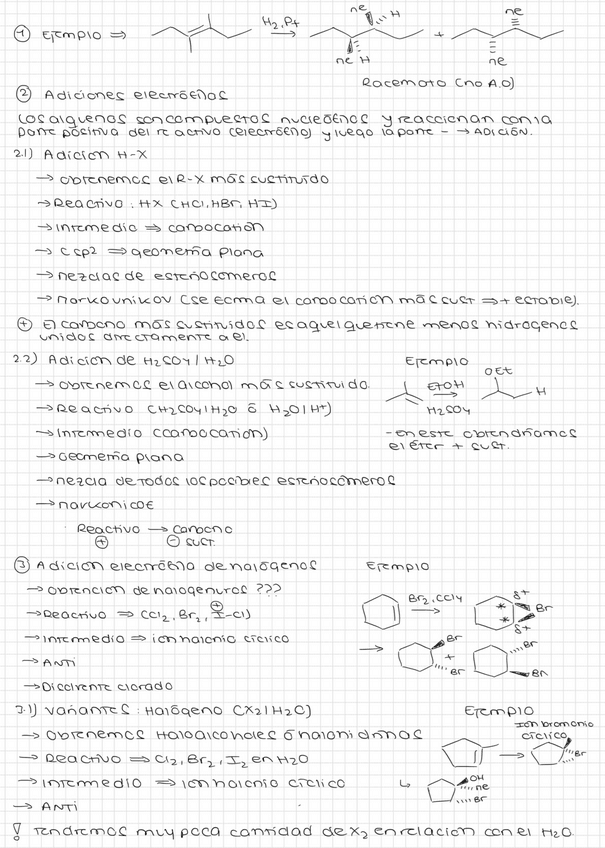 ① Ejemplo ⇒ H2, Pt
Me H + Me
Me H Me
Racemato (no A.O)
② Adiciones electrófilas
Los alquenos son compuestos nucleófilos y reaccionan con la
parte positiva del reactivo (electrófilo) y luego la parte - → ADICIÓN.
2.1) Adicion H-X
→ obtenemos el R-X más sustituido
→ Reactivo : HX (HCl, HBr, HI)
→ Intermedio ⇒ carbocation
→ C sp2 ⇒ geometría plana
→ mezclas de estereosomeros
→ Markovnikov (se forma el carbocation más sust ⇒ + estable).
⊕ El carbono más sustituidos es aquel que tiene menos hidrogenos
unidos directamente a el.
2.2) Adicion de H2SO4 / H2O
→ obtenemos el alcohol más sustituido.
→ Reactivo (H2SO4/H2O ó H2O/H+)
→ Intermedio (carbocation)
→ Geometría plana
→ mezcla de todos los posibles estereosómeros
→
Reactivo → carbono
⊕ ⊖ sust.
Ejemplo
EtOH
H2SO4
OEt
H
- en este obtendríamos
el éter + sust.
③ Adicion electrófila de halógenos
→ obtencion de halogenuros ???
→ Reactivo ⇒ CCl2, Br2, I-Cl)
⊕
→ Intermedio ⇒ ion halonio cíclico
→ ANTI
→ Disolvente clorado
Ejemplo
Br2, CCl4
* * δ+ Br δ+
→ Br + Br
Br Br
3.1) Variantes : Halógeno (X2/H2O)
→ obtenemos Haloalcoholes ó halohidrinas
→ Reactivo ⇒ Cl2, Br2, I2 en H2O
→ Intermedio ⇒ ion halonio cíclico
→ ANTI
Ejemplo
Ion bromonio
cíclico
Br
OH
Me
Br
! Tendremos muy poca cantidad de X2 en relacion con el H2O.